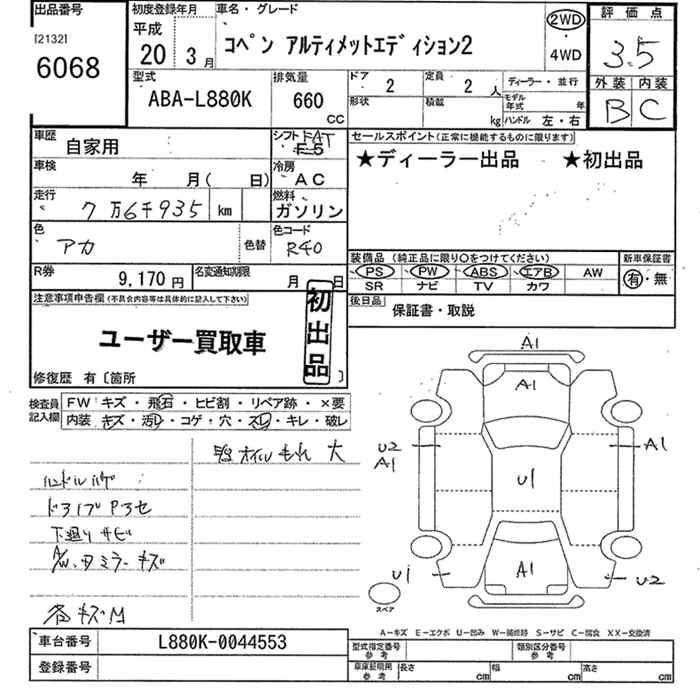 出品番号
[2132]
6068
初度登録年月
平成
20 3 月
車名・グレード
コペン アルティメットエディション2
2WD
4WD
評価点
3.5
外装 内装
B C
型式
ABA-L880K
排気量
660
CC
ドア
2
定員
2 人
形状
積載
kg
ディーラー・並行
モデル年式 年
ハンドル 左・右
車歴
自家用
シフト
FAT
F5
車検
年 月( 日)
冷房
AC
走行
7万6千935 km
燃料
ガソリン
色
アカ
色替
色コード
R40
R券
9,170 円
名変通知期限
月 日
セールスポイント(正常に機能するものに限ります)
★ディーラー出品 ★初出品
装備品 (純正品に限り○をつけてください)
PS PW ABS エアB AW
SR ナビ TV カワ
新車保証書
有・無
後日品
保証書・取説
注意事項申告欄(不具合内容等は具体的に記入して下さい)
ユーザー買取車
初出品
修復歴 有〔箇所 〕
検査員記入欄
FW キズ・飛石・ヒビ割・リペア跡・×要
内装 キズ・汚レ・コゲ・穴・スレ・キレ・破レ
オイルもれ 大
ハンドルハゲ
下廻りサビ
A/W、ミラーキズ
各キズM
A1
A1
U2
A1
A1
U1
U1
A1
U2
スペア
A-キズ E-エクボ U-凹み W-補修跡 S-サビ C-腐食 XX-交換済
車台番号
L880K-0044553
登録番号
型式指定番号
参考
類別区分番号
参考
車庫証明用
参考
長さ cm
幅 cm
高さ cm